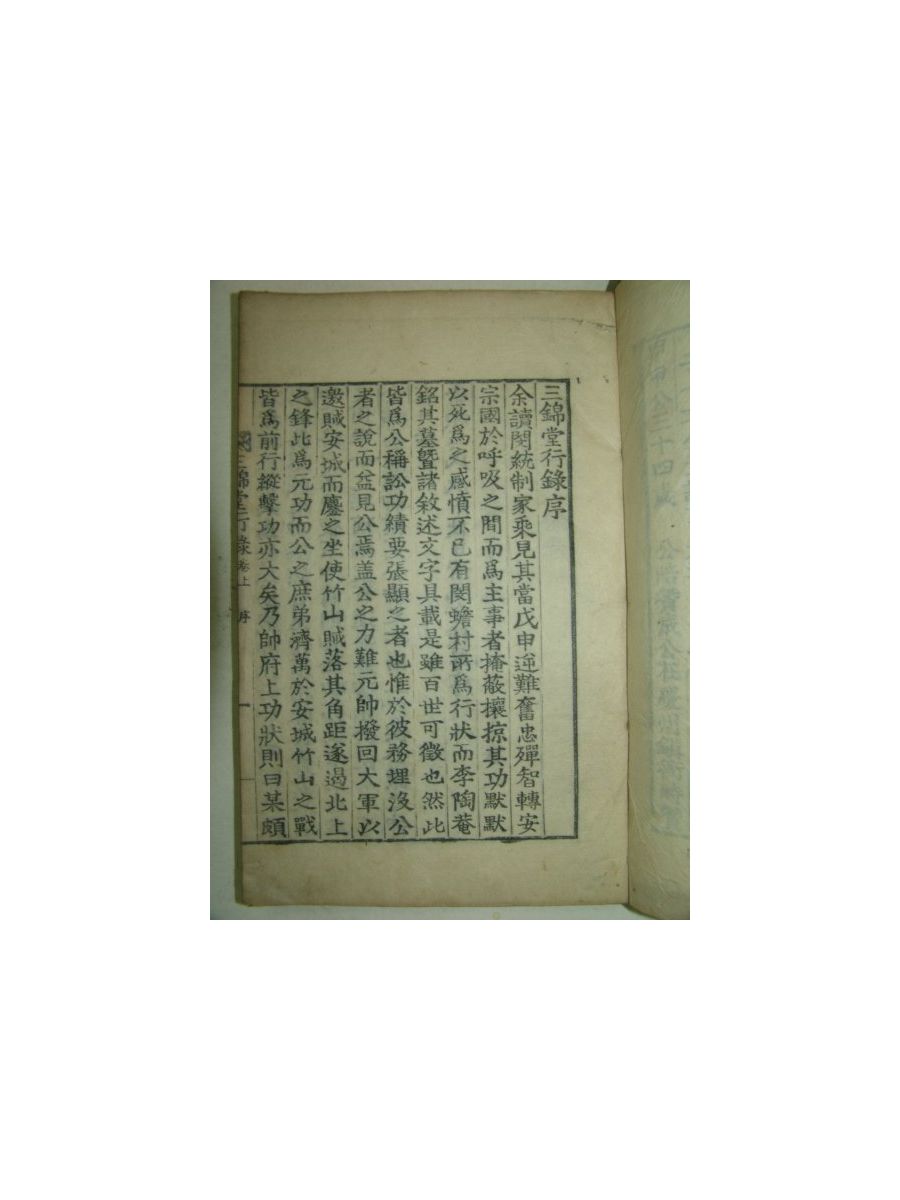 三錦堂行錄序
余讀閔統制家乘見其當戊申逆難奮忠殫智轉安
宗國於呼吸之間而爲主事者掩蔽攘掠其功默默
以死爲之感憤不已有閔蟾村所爲行狀而李陶菴
銘其墓暨諸敘述文字具載是雖百世可徵也然此
皆爲公稱訟功績要張顯之者也惟於彼務埋沒公
者之說而益見公焉盖公之力難元帥撥回大軍以
邀賊安城而鏖之坐使竹山賊落其角距遂遏北上
之鋒此爲元功而公之庶弟濟萬於安城竹山之戰
皆爲前行縱擊功亦大矣乃帥府上功狀則曰某頗
三錦堂行錄 卷上 序 一